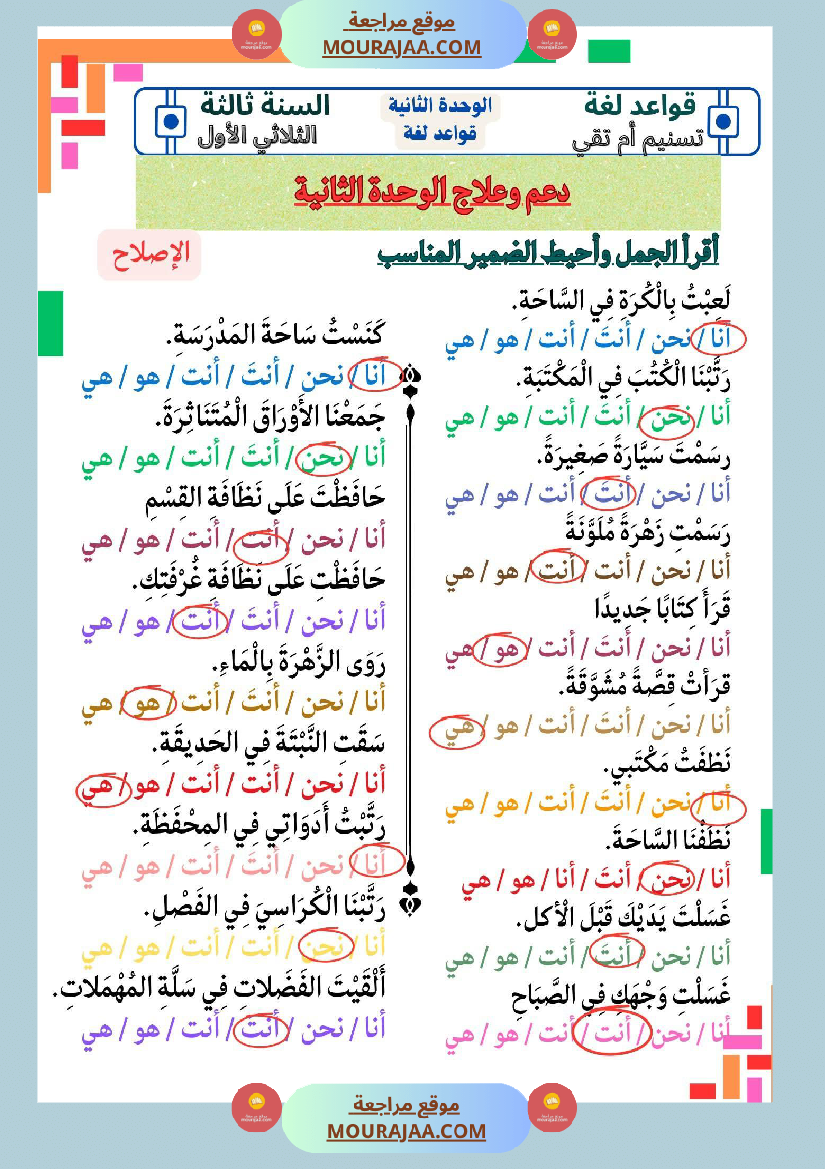 موقع مراجعة
MOURAJAA.COM
قواعد لغة
تسنيم أم تقي
الوحدة الثانية
قواعد لغة
السنة ثالثة
الثلاثي الأول
دعم وعلاج الوحدة الثانية
أقرأ الجمل وأحيط الضمير المناسب
الإصلاح
لَعِبْتُ بِالْكُرَةِ فِي السَّاحَةِ.
أنا / نحن / أنتَ / أنت / هو / هي
رَتَّبْنَا الْكُتُبَ فِي الْمَكْتَبَةِ.
أنا / نحن / أنتَ / أنت / هو / هي
رسَمْتَ سَيَّارَةً صَغِيرَةً.
أنا / نحن / أنتَ / أنت / هو / هي
رَسَمْتِ زَهْرَةً مُلَوَّنَةً
أنا / نحن / أنت / أنت / هو / هي
قَرَأَ كِتَابًا جَدِيدًا
أنا / نحن / أنتَ / أنت / هو / هي
قرَأتْ قِصَّةً مُشَوَّقَةً.
أنا / نحن / أنتَ / أنت / هو / هي
نَظفَتُ مَكْتَبي.
أنا / نحن / أنتَ / أنت / هو / هي
نَظَفْنَا السَّاحَةَ.
أنا / نحن / أنتَ / أنا / هو / هي
غَسَلْتَ يَدَيْكَ قَبْلَ الْأكل.
أنا / نحن / أنتَ / أنت / هو / هي
غَسَلْتِ وَجْهَكِ فِي الصَّبَاحِ
أنا / نحن / أنت / أنت / هو / هي
كَنَسْتُ سَاحَةَ المَدْرَسَةِ.
أنا / نحن / أنتَ / أنت / هو / هي
جَمَعْنَا الأَوْرَاقَ الْمُتَنَاثِرَةَ.
أنا / نحن / أنتَ / أنت / هو / هي
حَافَظْتَ عَلَى نَظَافَةِ القِسْمِ
أنا / نحن / أنت / أنت / هو / هي
حَافَظْتِ عَلَى نَظَافَةِ غُرْفَتِكِ.
أنا / نحن / أنتَ / أنت / هو / هي
رَوَى الزَّهْرَةَ بِالْمَاءِ.
أنا / نحن / أنتَ / أنت / هو / هي
سَقَتِ النَّبْتَةَ فِي الحَدِيقَةِ.
أنا / نحن / أنت / أنت / هو / هي
رَتَّبْتُ أَدَوَاتِي فِي المِحْفَظَةِ.
أنا / نحن / أنت / أنت / هو / هي
رَتَّبْنَا الْكُرَاسِيَ فِي الفَصْلِ.
أنا / نحن / أنت / أنت / هو / هي
أَلْقَيْتَ الفَضَلاتِ فِي سَلَّةِ المُهْمَلاتِ.
أنا / نحن / أنت / أنت / هو / هي
موقع مراجعة
MOURAJAA.COM